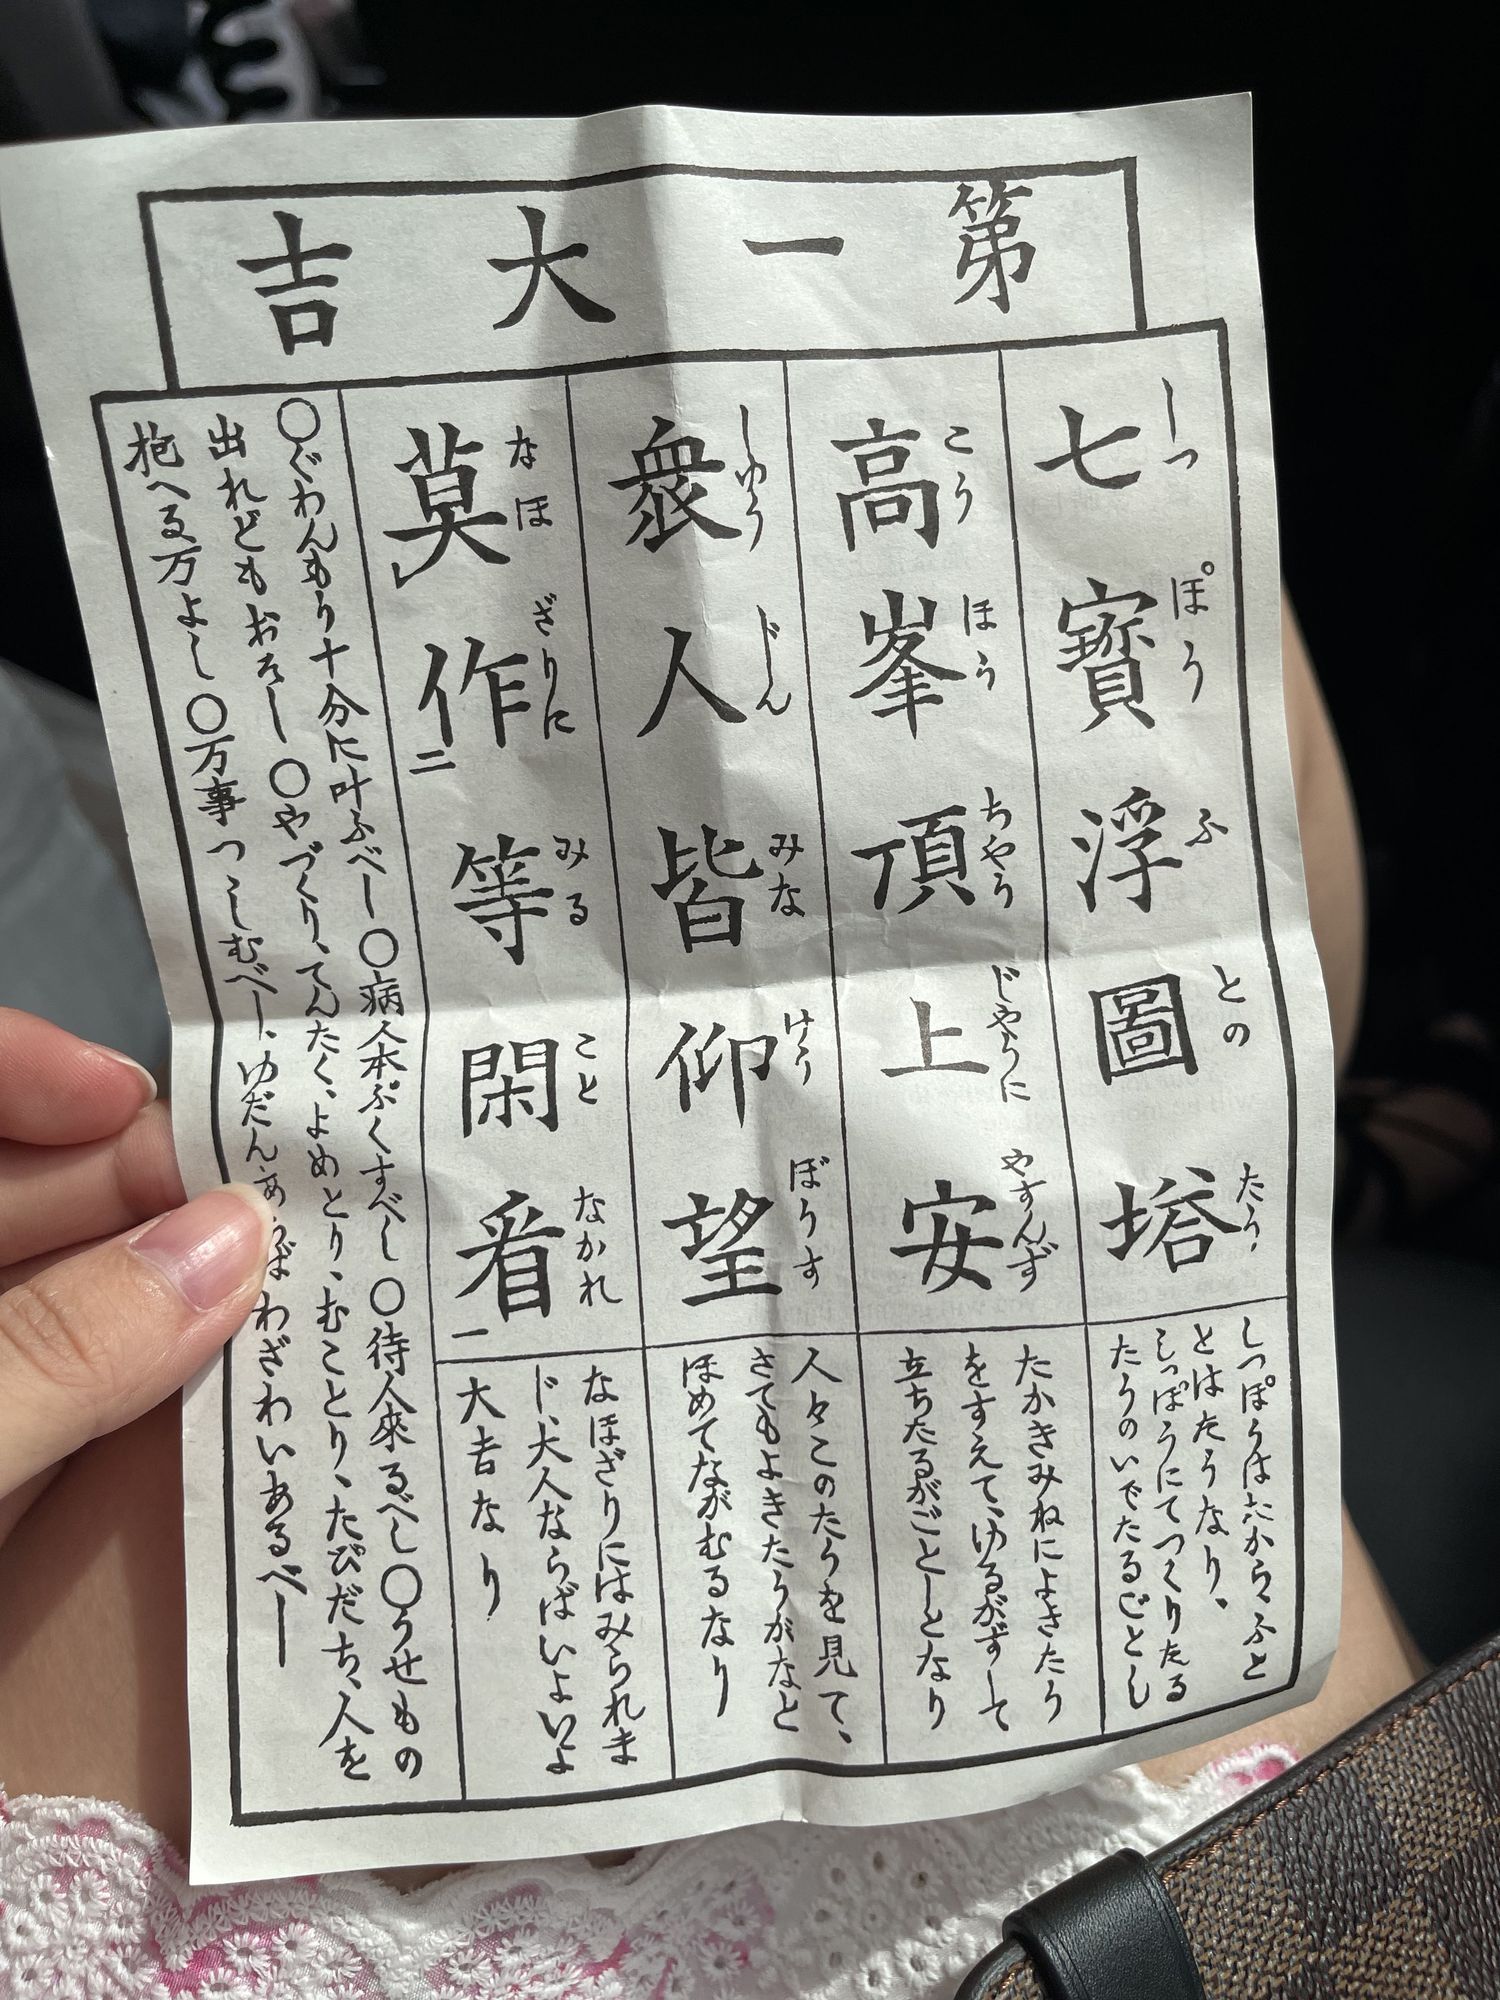 第一大吉
七寶浮圖塔
しつぽうふとのたう
しつぽうはたから、ふと
とはたうなり、
しつぽうにてつくりたる
たうのいでたるごとし
高峯頂上安
こうほうちやうじやうにやすんず
たかきみねによきたう
をすえて、ゆるがずして
立ちたるがごとしとなり
衆人皆仰望
しゆうじんみなけうぼうす
人々このたうを見て、
さてもよきたうかなと
ほめてながむるなり
莫レ作二等閑看一
なほざりにみることなかれ
なほざりにはみられま
じ、大人ならばいよいよ
大吉なり
〇ぐわんもう十分に叶ふべし〇病人本ぷくすべし〇待人來るべし〇うせもの
出れどもおそし〇やづくり、てんたく、よめとり、むことり、たびだち、人を
抱へる万よし〇万事つゝしむべし、ゆだんあらばわざわいあるべし